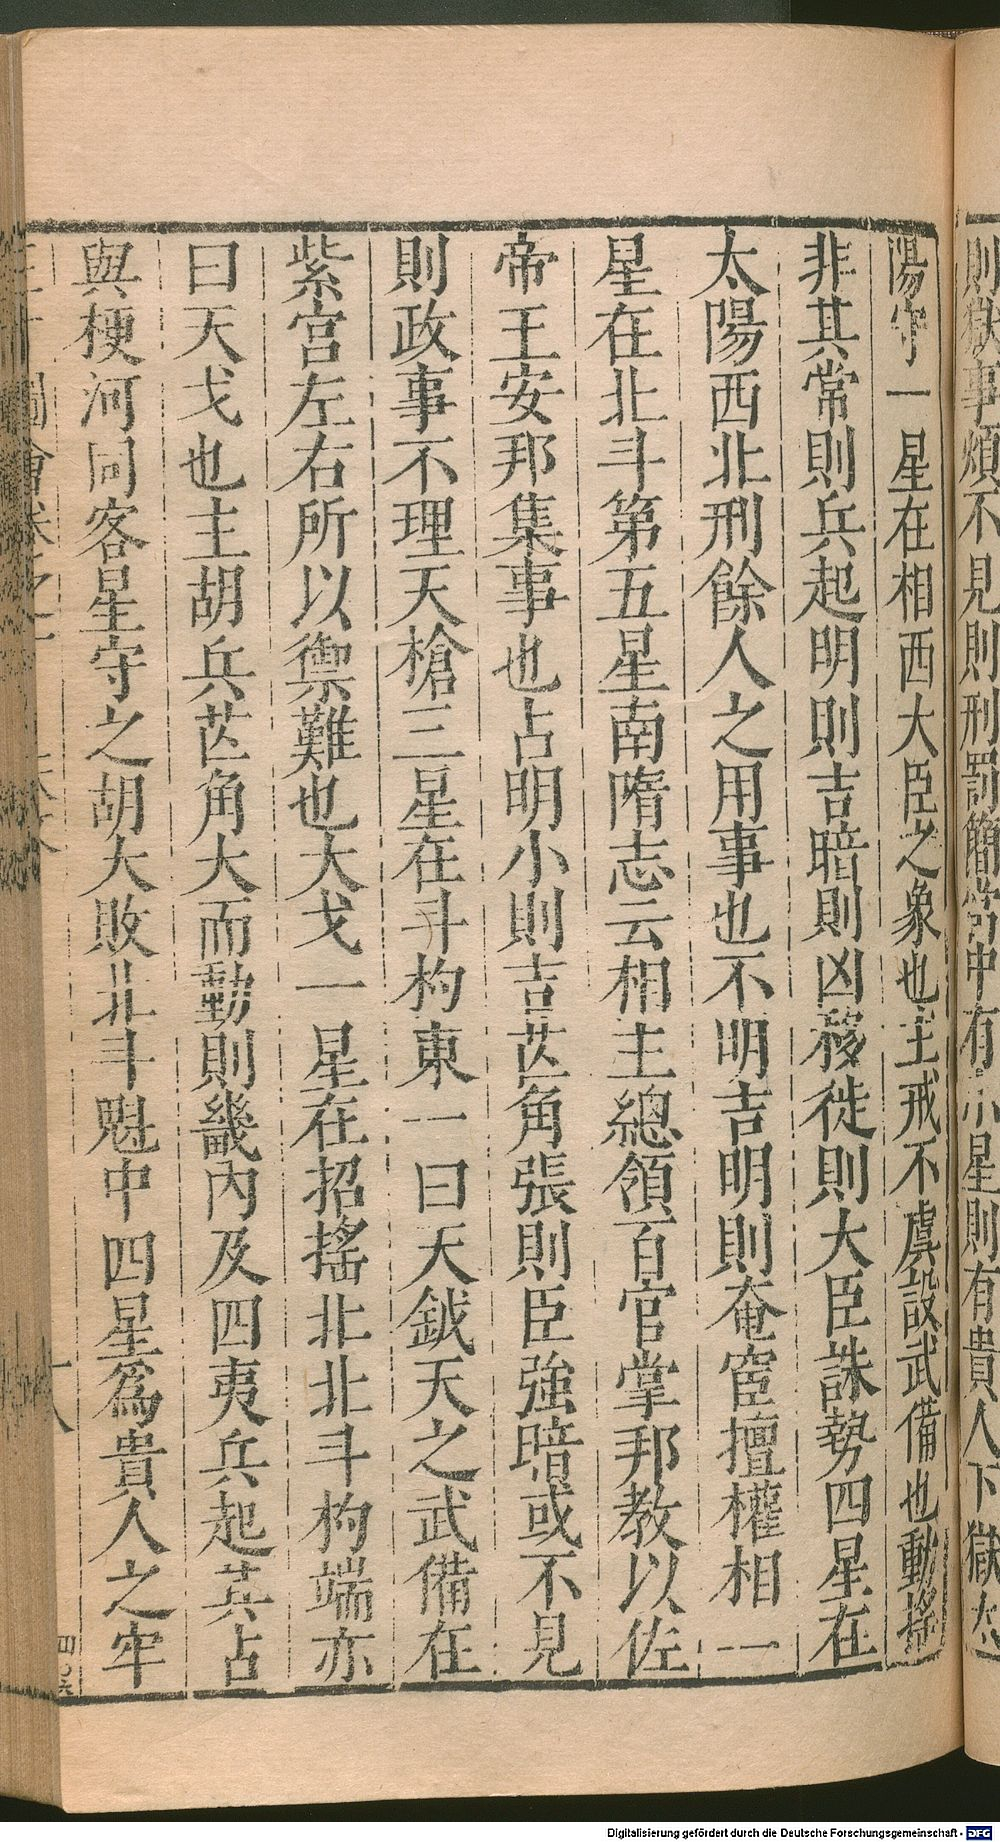 則獄事煩不見則刑罰簡常中有小星則有貴人下獄太
陽守一星在相西大臣之象也主戒不虞設武備也動搖
非其常則兵起明則吉暗則凶移徙則大臣誅勢四星在
太陽西北刑餘人之用事也不明吉明則奄宦擅權相一
星在北斗第五星南隋志云相主總領百官掌邦教以佐
帝王安邦集事也占明小則吉芒角張則臣強暗或不見
則政事不理天槍三星在斗杓東一曰天鉞天之武備在
紫宮左右所以禦難也大戈一星在招搖北北斗杓端亦
曰天戈也主胡兵芒角大而動則畿內及四夷兵起其占
與梗河同客星守之胡大敗北斗魁中四星為貴人之牢
圖會卷之
Digitalisierung gefördert durch die Deutsche Forschungsgemeinschaft - DFG